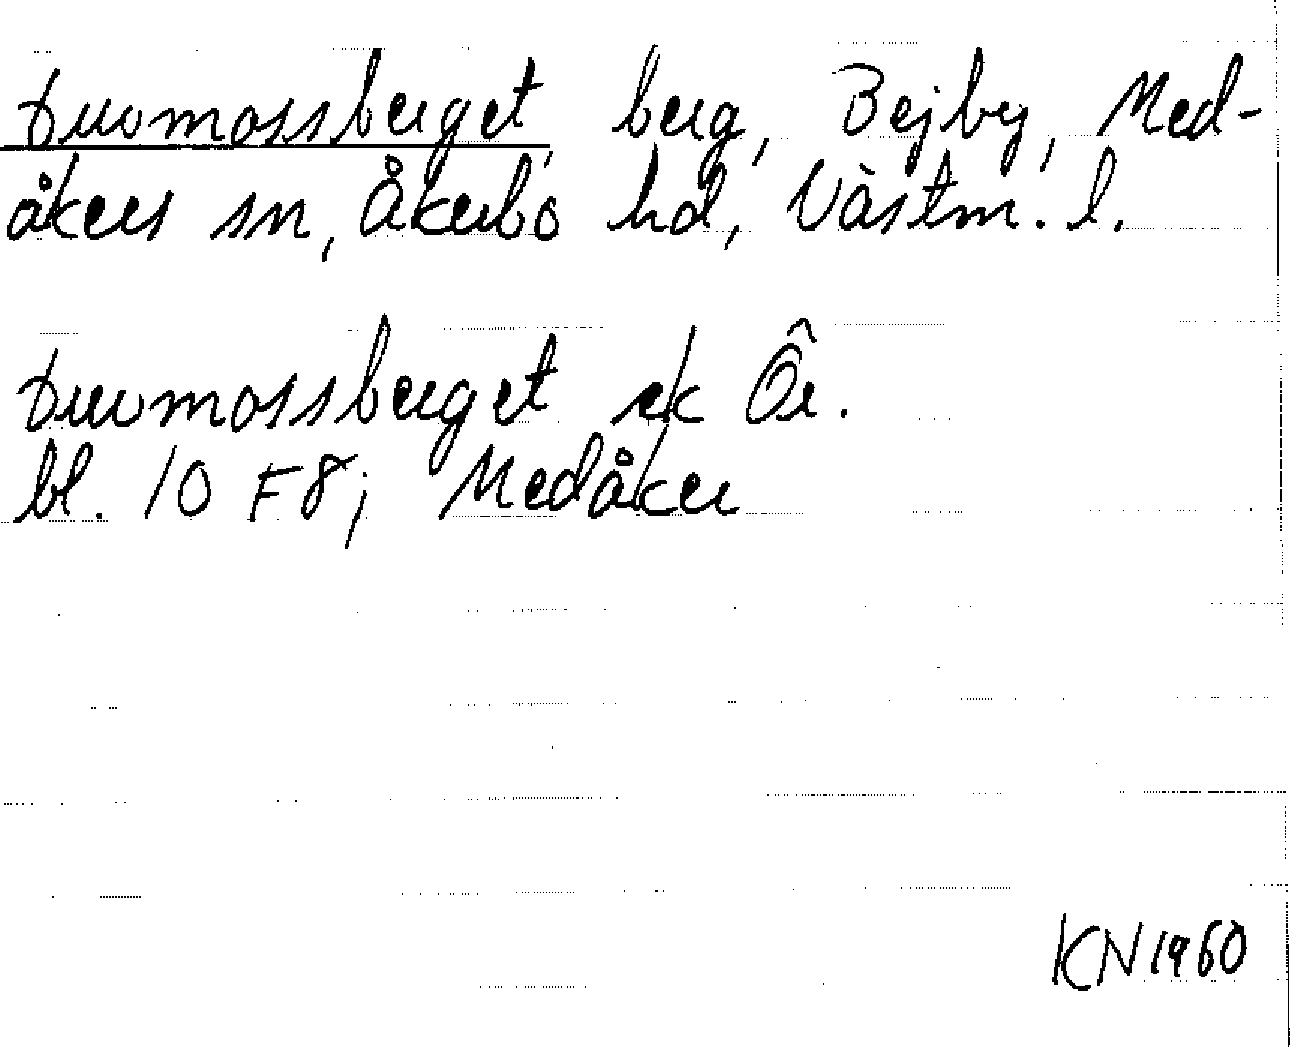 Duvmossberget, berg, Bejby, Med-
åkers sn, Åkerbo hd, Västm. l.
Duvmossberget ek Ör.
bl. 10 F8; Medåker
KN 1960